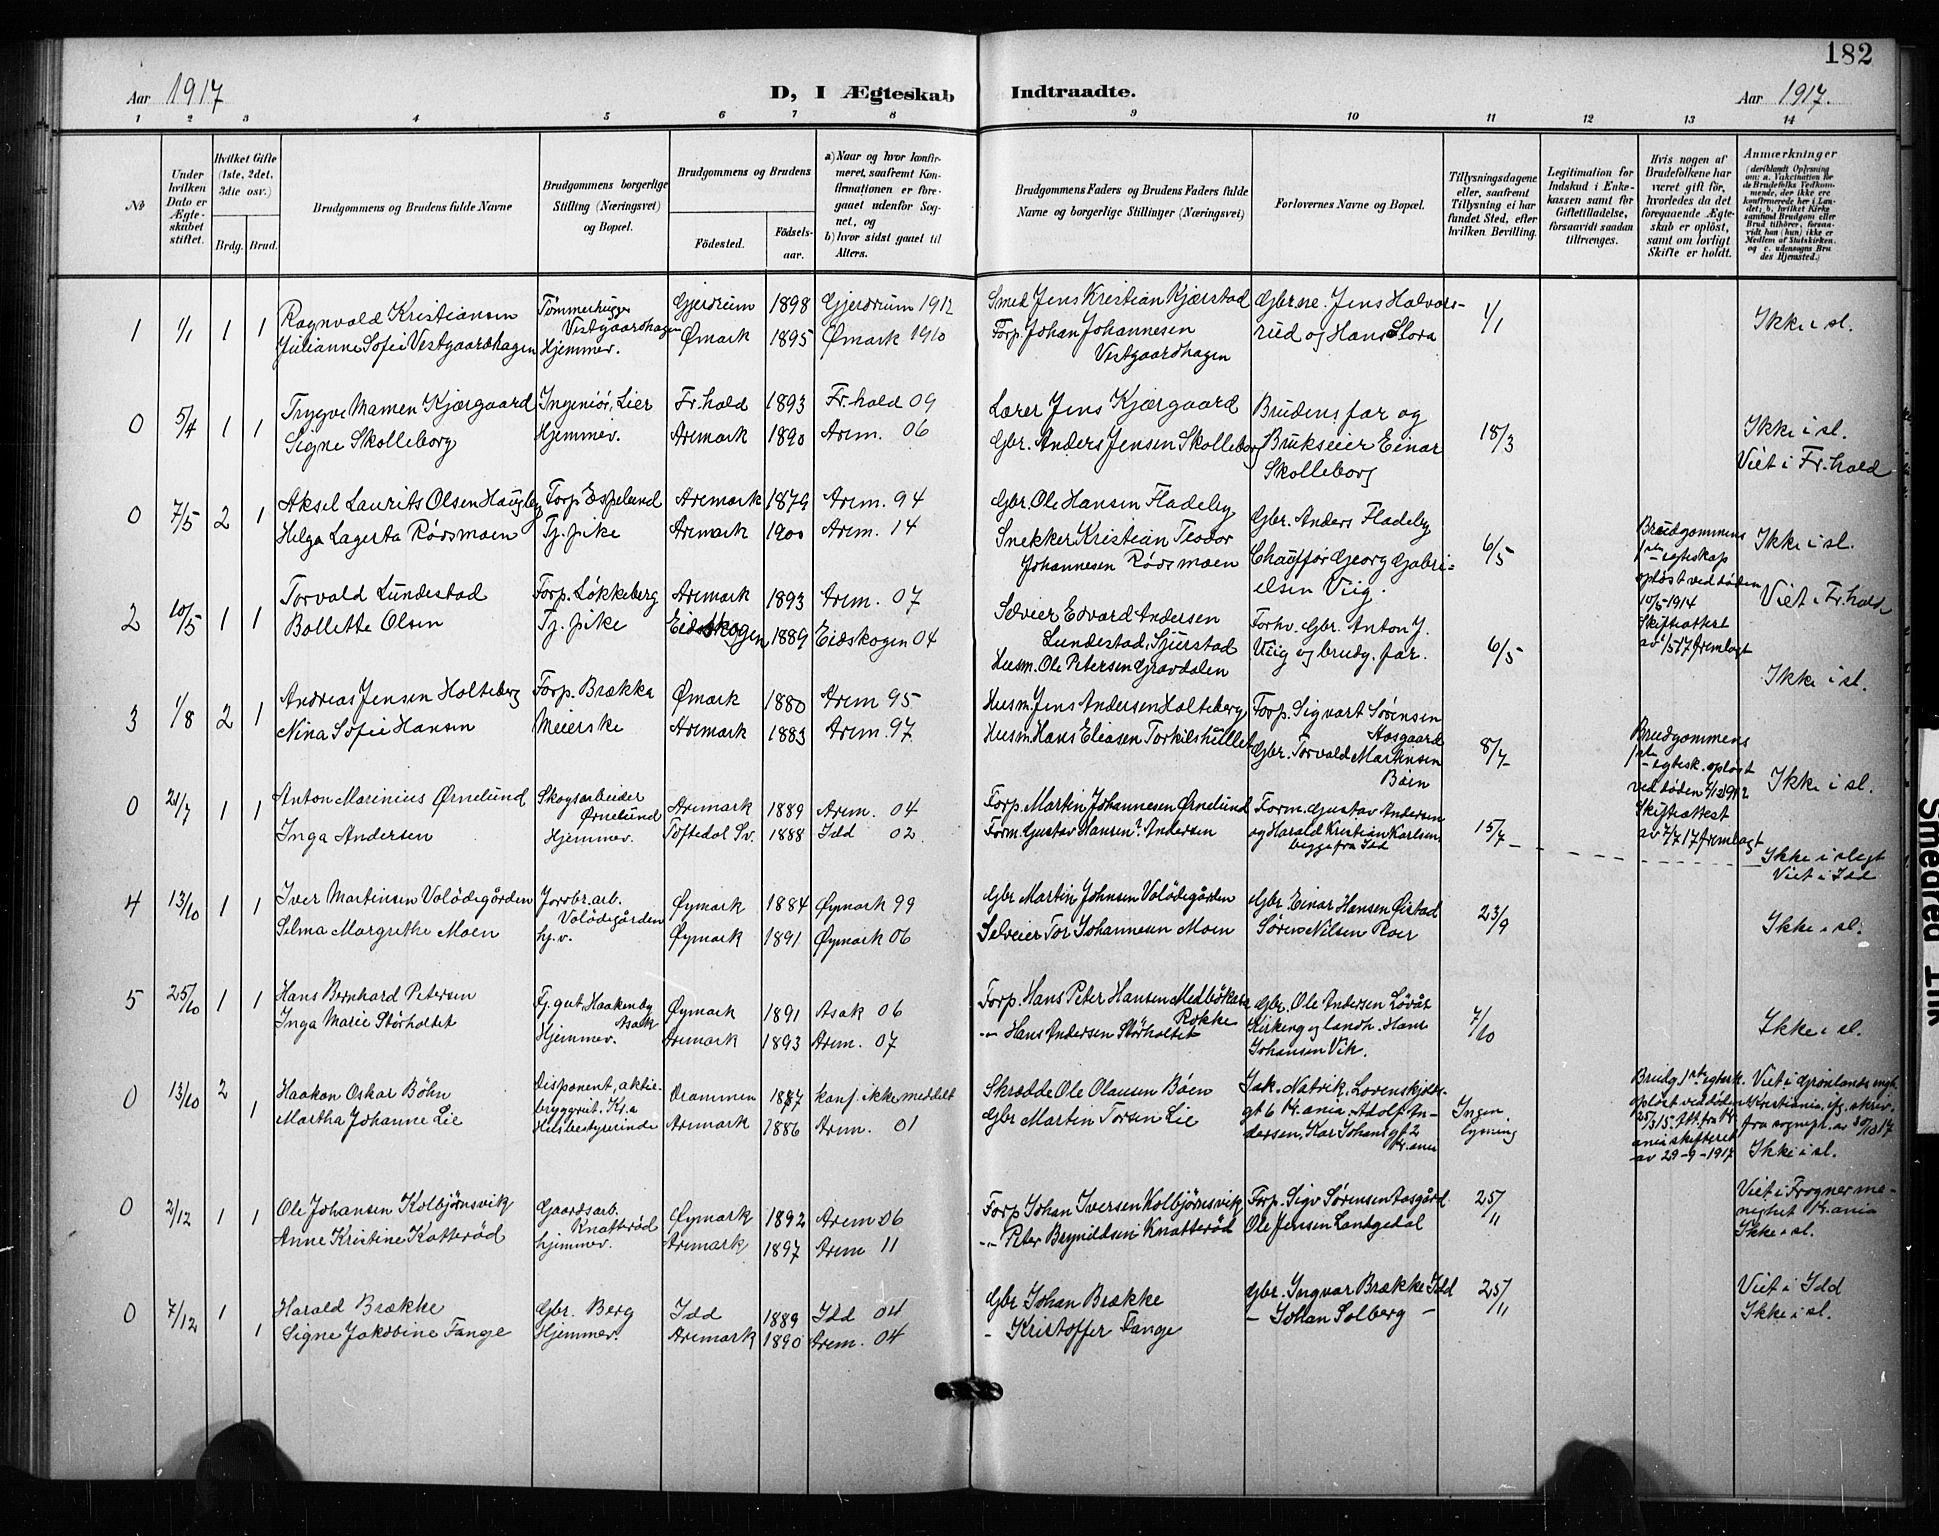 182
Aar 1917
D, I Ægteskab Indtraadte.
Aar 1917.
1 2 3 4 5 6 7 8 9 10 11 12 13 14
No
Under hvilken Dato er Ægteskabet stiftet.
Hvilket Gifte (1ste, 2det, 3die osv.)
Brdg. Brud.
Brudgommens og Brudens fulde Navne
Brudgommens borgerlige Stilling (Næringsvei) og Bopæl.
Brudgommens og Brudens
Födested. Födselsaar.
a) Naar og hvor konfirmeret, saafremt Konfirmationen er foregaaet udenfor Sognet, og
b) hvor sidst gaaet til Alters.
Brudgommens Faders og Brudens Faders fulde Navne og borgerlige Stillinger (Næringsvei)
Forlovernes Navne og Bopæl.
Tillysningsdagene eller, saafremt Tillysning ei har fundet Sted, efter hvilken Bevilling.
Legitimation for Indskud i Enkekassen samt for Giftetilladelse, forsaavidt saadan tiltrænges.
Hvis nogen af Brudefolkene har været gift för, hvorledes da det foregaaende Ægteskab er oplöst, samt om lovligt Skifte er holdt.
Anmærkninger
1 1/1 1 1 Ragnvald Kristiansen Tømmerhugger Vestgaardhagen Gjerdrum 1898 Gjerdrum 1912 Smed Jens Kristian Kjærstad Gbrne. Jens Halvorsrud og Hans Slora 1/1 Ikke i sl.
Julianne Sofie Vestgaardhagen Hjemmev. Ømark 1895 Ømark 1910 Forp. Johan Johannesen Vestgaardhagen
0 5/4 1 1 Trygve Mamen Kjærgaard Ingeniör, Lier Fr.hald 1893 Fr.hald 09 Lærer Jens Kjærgaard Brudens far og Brukseier Einar Skolleborg 18/3 Ikke i sl. Viet i Fr.hald
Signe Skolleborg Hjemmev. Aremark 1890 Arem. 06 Gbr. Anders Jensen Skolleborg
0 7/5 2 1 Aksel Laurits Olsen Haugby Forp. Espelund Aremark 1879 Arem. 94 Gbr. Ole Hansen Fladeby Gbr. Anders Fladeby 6/5 Brudgommens 1ste egteskap opløst ved døden 10/5 1914 Skifteattest av 1/5 17 fremlagt Ikke i sl.
Helga Lagerta Rödsmoen Tj. pike Aremark 1900 Arem. 14 Snekker Kristian Teodor Johannesen Rödsmoen Chauffør Georg Gabrielsen Viig. Viet i Fr.hald
2 10/5 1 1 Torvald Lundestad Forp. Løkkeberg Aremark 1893 Arem. 07 Selveier Edvard Andersen Lundestad, Sjürstad Forhv. Gbr. Anton J. Viig og brudg. far. 6/5 Ikke i sl.
Bollette Olsen Tj. pike Eidskogen 1889 Eidskogen 04 Husm. Ole Petersen Gravdalen
3 1/8 2 1 Andreas Jensen Holteberg Forp. Brække Ømark 1880 Arem 95 Husm. Jens Andersen Holteberg Forp. Sigvart Sørensen Aasgaard 8/7 Brudgommens 1ste egtesk. opløst ved døden Skifteattest av 7/7 17 fremlagt Ikke i sl.
Nina Sofie Hansen Meierske Aremark 1883 Arem. 97 Husm. Hans Eliasen Torkilshullet Gbr. Torvald Martinsen Böen
0 21/7 1 1 Anton Marinius Ørnelund Skogsarbeider Ørnelund Aremark 1889 Arem. 04 Forp. Martin Johannesen Ørnelund Form. Gustav Andersen og Harald Kristian Karlsen begge fra Idd 15/7 Ikke i slegt Viet i Idd
Inga Andersen Hjemmev. Toftedal Sv. 1888 Idd 02 Form. Gustav Hansen? Andersen
4 13/10 1 1 Iver Martinsen Volödegården Jordbr.arb. Volödegården Øymark 1884 Øymark 99 Gbr Martin Johnsen Volödegården Gbr. Einar Hansen Øistad 23/9 Ikke i sl.
Selma Margrethe Moen hj.v. Øymark 1891 Øymark 06 Selveier Tor Johannesen Moen Sören Nilsen Roer
5 25/10 1 1 Hans Bernhard Petersen Tj. gut Haakenby Asak Øymark 1891 Asak 06 Forp. Hans Peter Hansen Medböken Rokke Gbr. Ole Andersen Lövås 7/10 Ikke i sl.
Inga Marie Störholtet Hjemmev. Aremark 1893 Arem. 07 -"- Hans Andersen Störholtet Kirkeng og landh. Hans Johansen Vik.
0 13/10 2 1 Haakon Oskar Böhn Disponent, aktiebryggeri. Kr.a Drammen 1877 konf. ikke meddelt Skrædder Ole Olausen Böen Jak. Natvik. Lovenskjoldsgt 6 Kr.ania. Adolf Andersen, Karl Johans gt 2 Kr.ania Ingen lysning Brudg. 1st egtesk. opløst ved døden 25/3 15. Att. fra Kr.ania skifteret av 29-9-1917 Viet i Grønlands mgh. Kristiania, ifg. skriv. fra sognepr. av 30/10 17 Ikke i sl.
Martha Johanne Lie Husbestyrerinde Aremark 1886 Arem. 01 Gbr Martin Torsen Lie
0 2/12 1 1 Ole Johansen Kolbjørnsvik Gaardsarb. Knatteröd Øymark 1892 Arem 06 Forp Johan Iversen Kolbjørnsvik Forp. Sigv Sörensen Aasgård 25/11 Viet i Frogner menighet Kr.ania Ikke i sl.
Anne Kristine Katteröd hjemmev. Aremark 1897 Arem 11 -"- Peter Brynildsen Knatteröd Ole Jensen Langedal
0 7/12 1 1 Harald Brække Gbr. Berg Idd 1889 Idd 04 Gbr Johan Brække Gbr. Ingvar Brække Idd 25/11 Viet i Idd Ikke i sl.
Signe Jakobine Tange Hjemmev. Aremark 1890 Arem. 04 - Kristoffer Tange - Johan Solberg -
Smedred Lnk